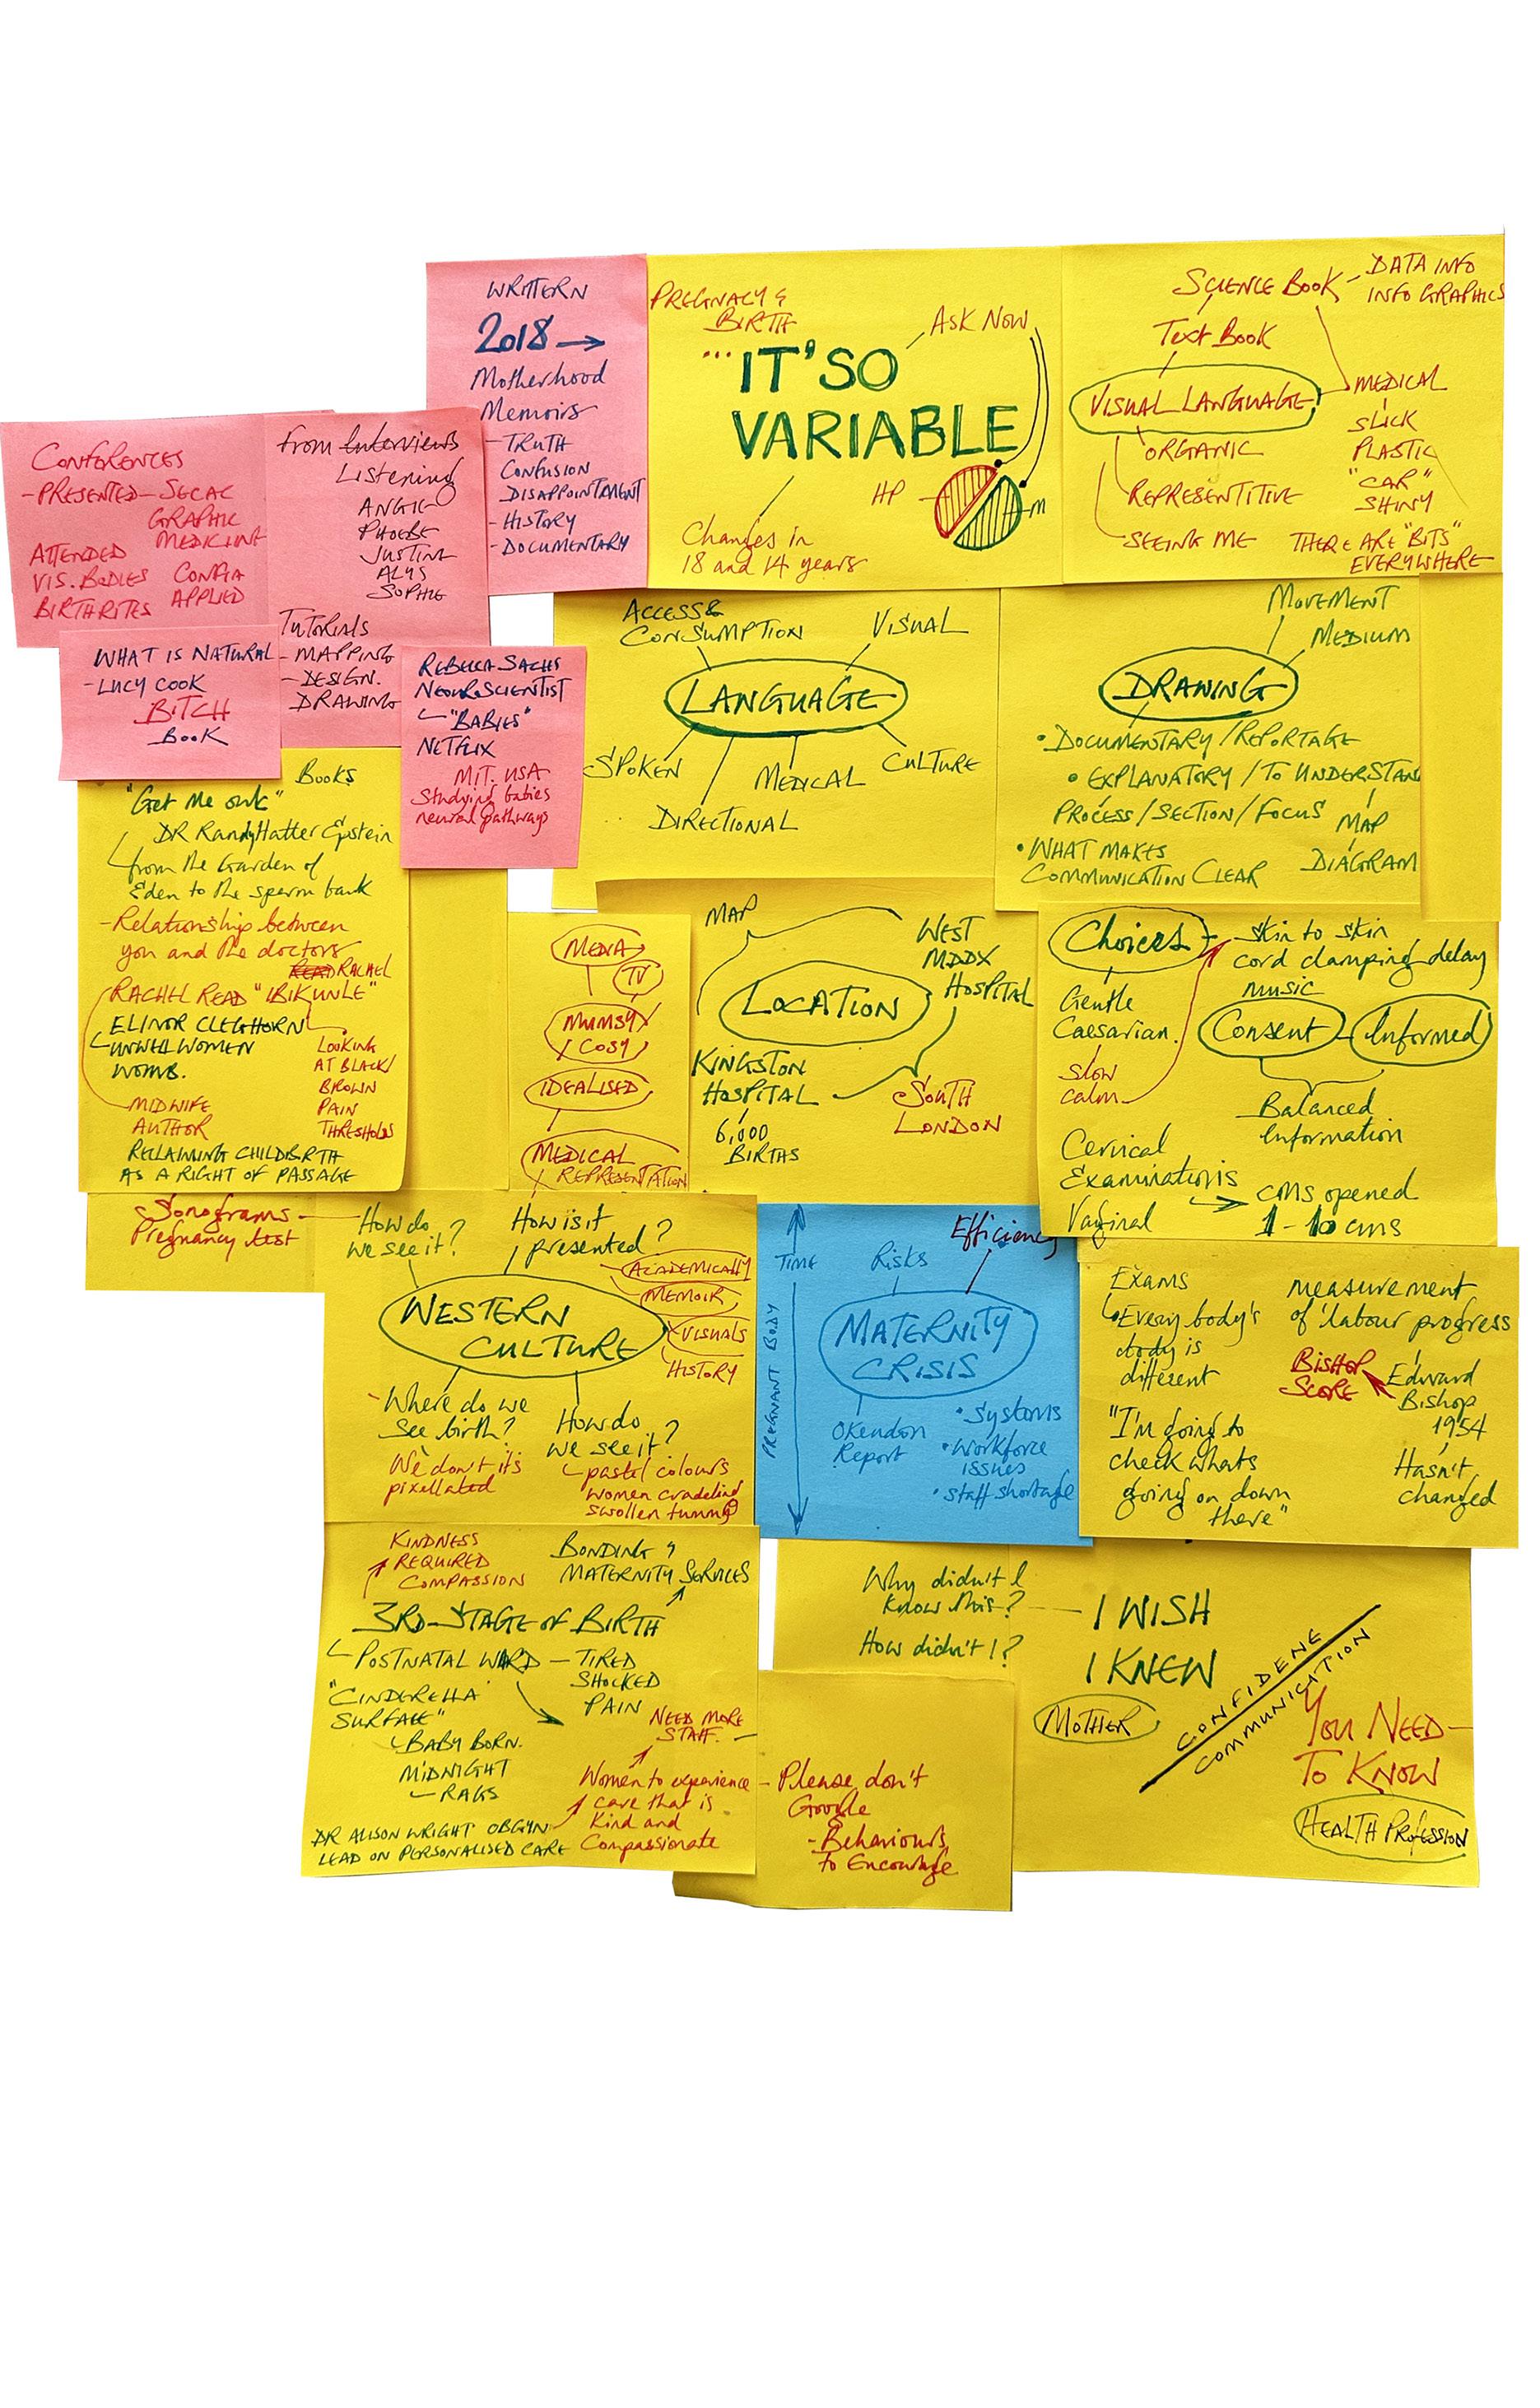 WRITTERN
2018 →
Motherhood
Memoirs
- TRUTH
CONFUSION
DISAPPOINTMENT
- HISTORY
- DOCUMENTARY
PREGNACY &
BIRTH
ASK NOW
..."IT'SO
VARIABLE
HP
M
Changes in
18 and 14 years
SCIENCE BOOK - DATA INFO
INFO GRAPHICS
TEXT BOOK
VISUAL LANGUAGE
MEDICAL
SLICK
PLASTIC
"CAR"
SHINY
ORGANIC
REPRESENTITIVE
SEEING ME
THERE ARE "BITS"
EVERYWHERE
CONFERENCES
- PRESENTED - SECAC
GRAPHIC
MEDICINE
ATTENDED
VIS. BODIES
BIRTHRITES
CONFIA
APPLIED
from Interviews
Listening
ANGIE
PHOEBE
JUSTINE
ALYS
SOPHIE
TUTORIALS
- MAPPING
- DESIGN.
DRAWING
WHAT IS NATURAL
- LUCY COOK
BITCH
BOOK
REBECCA SACHS
NEUROSCIENTIST
"BABIES"
NETFLIX
M.I.T. USA
Studying babies
neural pathways
ACCESS &
CONSUMPTION
VISUAL
LANGUAGE
SPOKEN
MEDICAL
CULTURE
DIRECTIONAL
MOVEMENT
MEDIUM
DRAWING
• DOCUMENTARY / REPORTAGE
• EXPLANATORY / TO UNDERSTAN
PROCESS / SECTION / FOCUS
MAP
DIAGRAM
• WHAT MAKES
COMMUNICATION CLEAR
BOOKS
"Get Me out"
DR Randy Hatter Epstein
from the Garden of
Eden to the sperm bank
- Relationship between
you and the doctors
READ RACHEL
RACHEL READ "IBIKUNLE"
ELINOR CLEGHORN
UNWELL WOMEN
WOMB.
LOOKING
AT BLACK/
BROWN
PAIN
THRESHOLDS
MIDWIFE
AUTHOR
RECLAIMING CHILDBIRTH
AS A RIGHT OF PASSAGE
MEDIA
TV
MUMSY
COSY
IDEALISED
MEDICAL
REPRESENTATION
MAP
WEST
MDDX
HOSPITAL
LOCATION
KINGSTON
HOSPITAL
6,000
BIRTHS
SOUTH
LONDON
Choices
skin to skin
cord clamping delay
music
Gentle
Caesarian.
slow
calm
Consent
Informed
Balanced
Information
Cervical
Examinations
Vaginal
cms opened
1 - 10 cms
Sonograms
Pregnancy test
How do
we see it?
How is it
presented?
ACADEMICALLY
MEMOIR
VISUALS
HISTORY
WESTERN
CULTURE
- Where do we
see birth?
We don't it's
pixellated
How do
we see it?
pastel colours
women cradeling
swollen tummy
TIME
PREGNANT BODY
Risks
Efficiency
MATERNITY
CRISIS
OKENDON
Report
• Systems
• Workforce
issues
• Staff shortage
Exams
Every body's
body is
different
"I'm going to
check whats
going on down
there"
measurement
of labour progress
BISHOP
SCORE
Edward
Bishop
1954
Hasn't
changed
KINDNESS
REQUIRED
COMPASSION
BONDING &
MATERNITY SERVICES
3RD STAGE OF BIRTH
POSTNATAL WARD - TIRED
SHOCKED
PAIN
"CINDERELLA
SURFACE"
BABY BORN.
MIDNIGHT
RAGS
NEED MORE
STAFF.
Women to experience
care that is
kind and
compassionate
DR ALISON WRIGHT OBGYN
LEAD ON PERSONALISED CARE
Why didn't I
know this?
How didn't I?
I WISH
I KNEW
MOTHER
CONFIDENE
COMMUNICATION
YOU NEED
TO KNOW
HEALTH PROFESSION
- Please don't
Google
- Behaviours
to Encourage